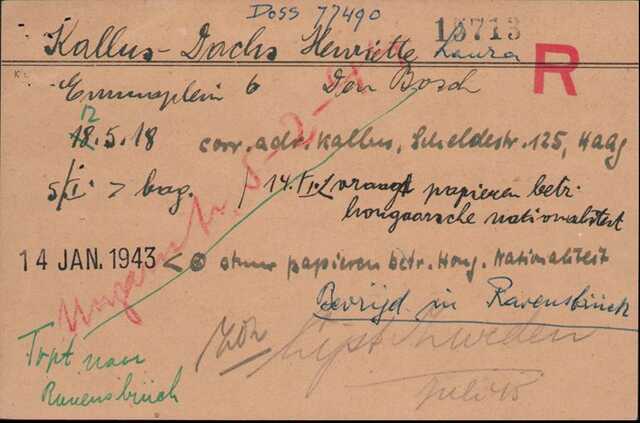 Doss 77490
15713
Kallus-Dachs Henriette Laura
R
Emmaplein 6 Den Bosch
12
18.5.18 corr. adr. Kallus, Scheldestr. 125, Haag
5/I > bag. / 14.I. vraagt papieren betr.
hongaarsche nationaliteit
14 JAN. 1943 < stuur papieren betr. Hong. Nationaliteit
Bevrijd in Ravensbrück
Topt naar
Ravensbrück
lijst Zweden
Juli 45